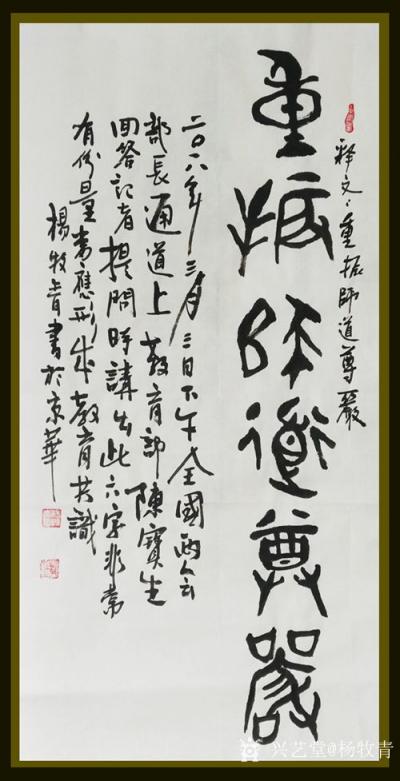 釋文：重振師道尊嚴
重振師道尊嚴
二〇一八年三月三日下午全國兩會
部長通道上教育部陳寶生
回答記者提問時講出此六字非常
有份量當應形成教育共識
楊牧青書於京華
兴艺堂@杨牧青